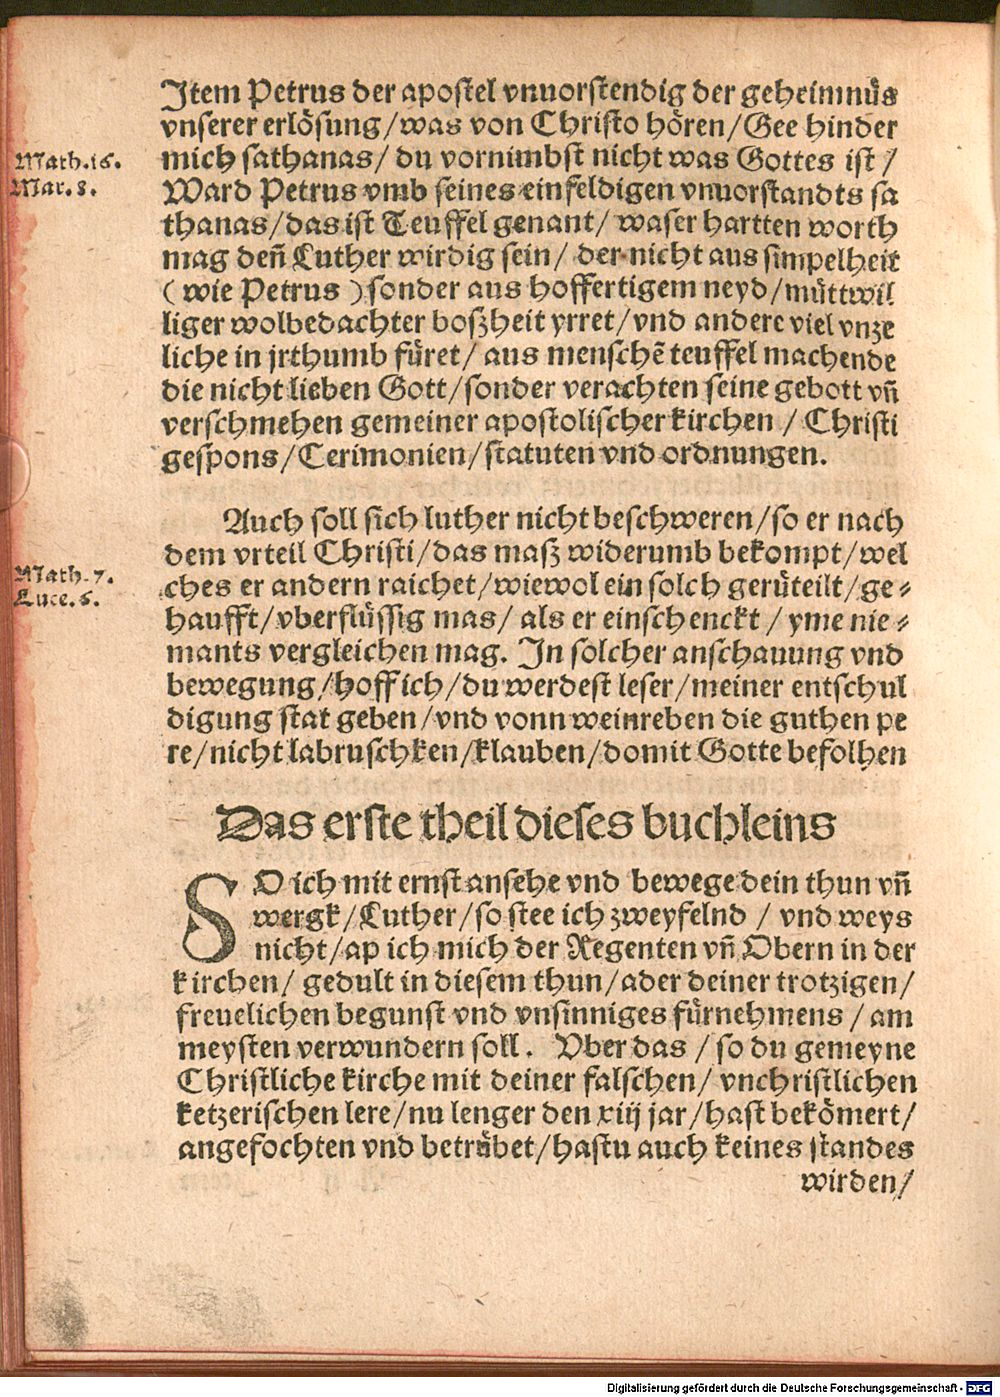 Item Petrus der apostel vnuorstendig der geheimnüs
vnserer erlösung/was von Christo hören/Gee hinder
Math.16.
mich sathanas/ du vornimbst nicht was Gottes ist/
Mar.8.
Ward Petrus vmb seines einfeldigen vnuorstandts sa
thanas/das ist Teuffel genant/ waser hartten worth
mag deñ Luther wirdig sein/ der nicht aus simpelheit
( wie Petrus ) sonder aus hoffertigem neyd/müttwil
liger wolbedachter boßheit yrret/vnd andere viel vnze
liche in jrthumb füret/ aus menschẽ teuffel machende
die nicht lieben Gott/sonder verachten seine gebott vñ
verschmehen gemeiner apostolischer kirchen / Christi
gespons/Cerimonien/statuten vnd ordnungen.
Auch soll sich luther nicht beschweren/so er nach
dem vrteil Christi/das masz widerumb bekompt/wel
Math.7.
ches er andern raichet/wiewol ein solch gerüteilt/ge-
Luce.6.
haufft/vberflüssig mas/ als er einschenckt / yme nie-
mants vergleichen mag. In solcher anschauung vnd
bewegung/hoff ich/du werdest leser/meiner entschul
digung stat geben/vnd vonn weinreben die guthen pe
re/nicht labruschken/klauben/domit Gotte befolhen
Das erste theil dieses buchleins
SO ich mit ernst ansehe vnd bewege dein thun vñ
wergk/Luther/so stee ich zweyfelnd / vnd weys
nicht/ap ich mich der Regenten vñ Obern in der
kirchen/ gedult in diesem thun/ader deiner trotzigen/
freuelichen begunst vnd vnsinniges fürnehmens / am
meysten verwundern soll. Vber das / so du gemeyne
Christliche kirche mit deiner falschen/ vnchristlichen
ketzerischen lere/nu lenger den xiij jar/hast bekömert/
angefochten vnd betrübet/hastu auch keines standes
wirden/
Digitalisierung gefördert durch die Deutsche Forschungsgemeinschaft - DFG